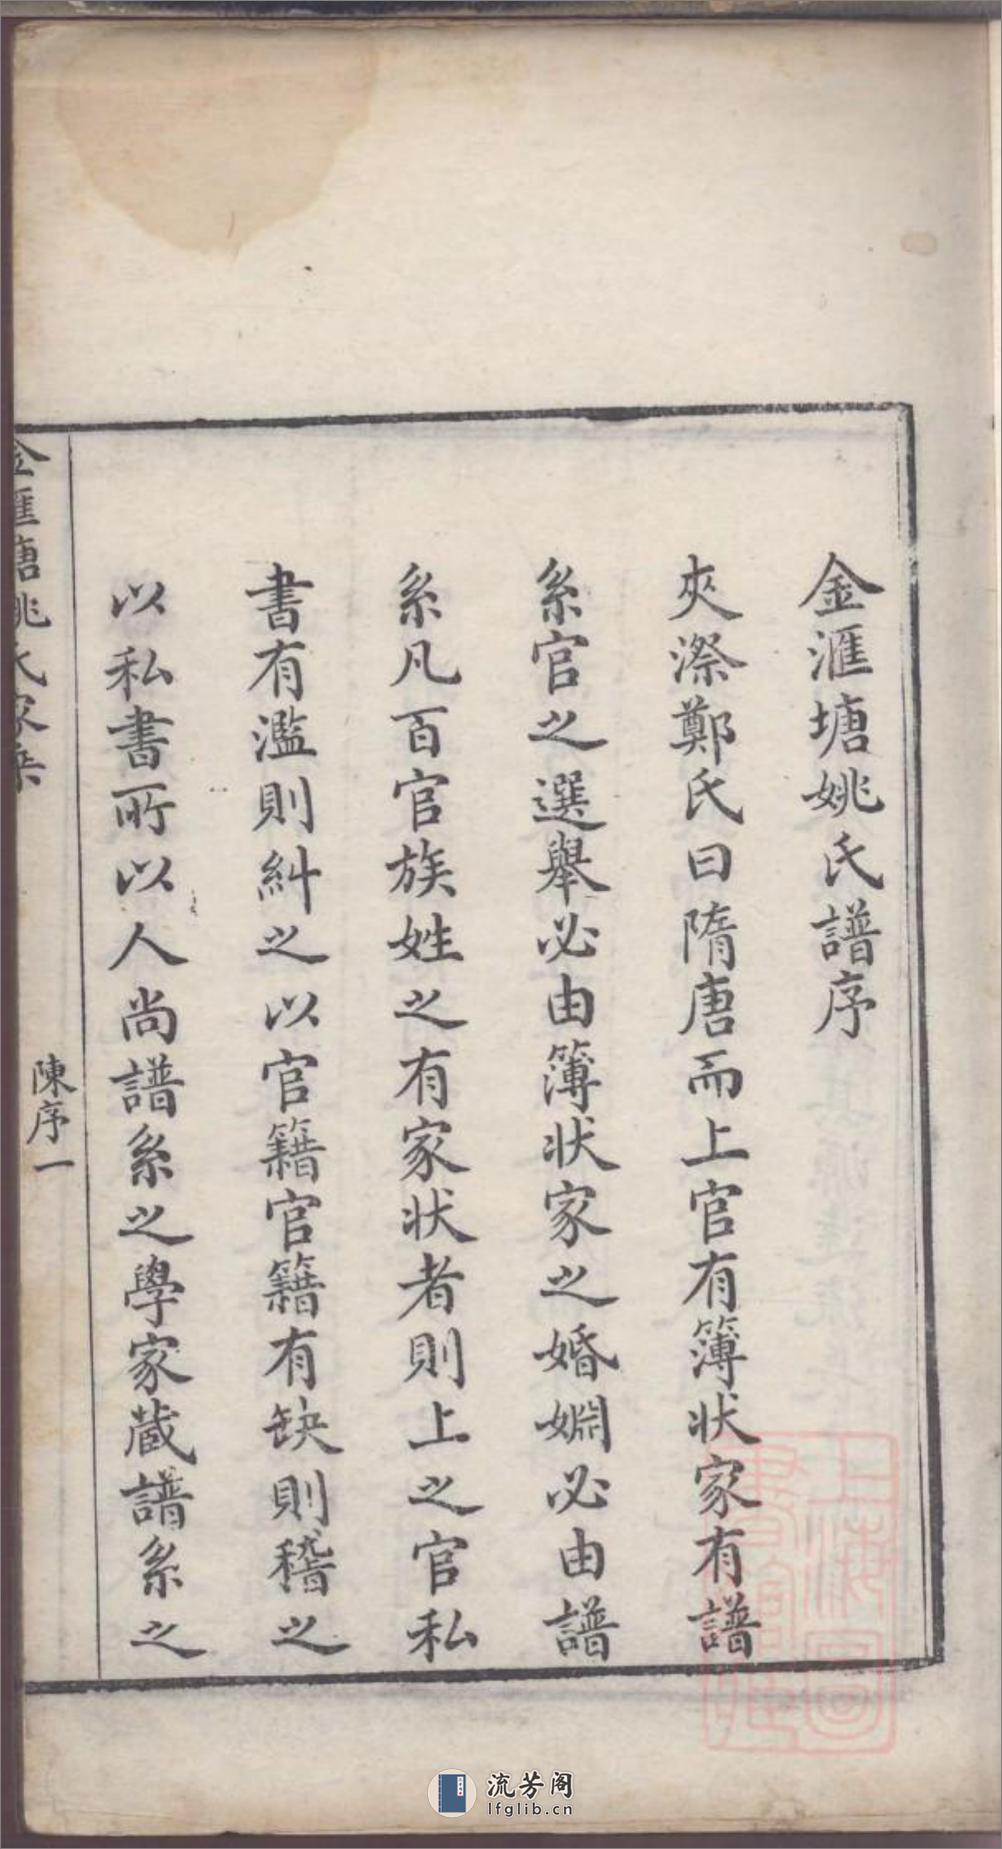 金滙塘姚氏譜序
夾漈鄭氏曰隋唐而上官有簿狀家有譜
系官之選舉必由簿狀家之婚婣必由譜
系凡百官族姓之有家狀者則上之官私
書有濫則糾之以官籍官籍有缺則稽之
以私書所以人尚譜系之學家藏譜系之
金匯塘姚氏家乘
陳序一
上海圖書館藏
流芳阁
lfglib.cn